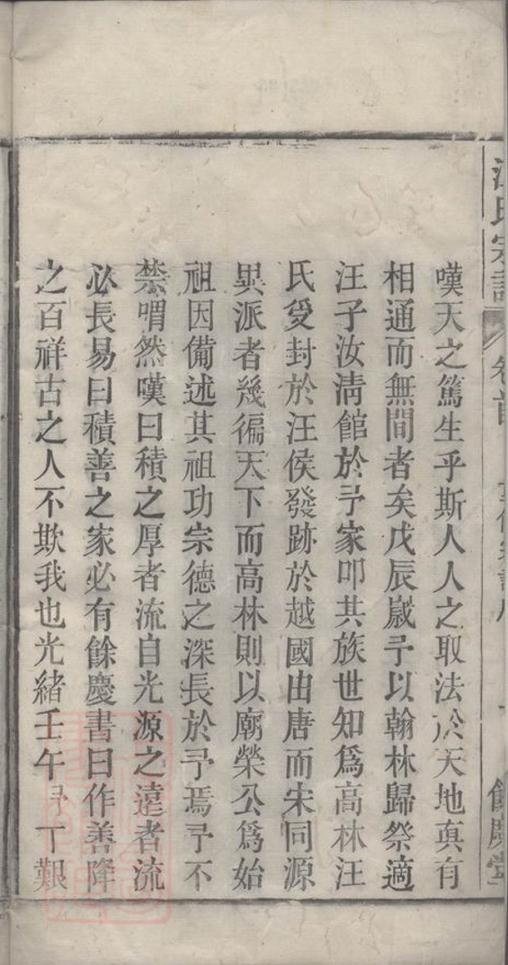 汪氏宗譜
卷首
一
餘慶堂
嘆天之篤生乎斯人人之取法於天地真有
相通而無間者矣戊辰嵗予以翰林歸祭適
汪子汝淸館於予家叩其族世知爲高林汪
氏受封於汪侯發跡於越國由唐而宋同源
異派者幾徧天下而高林則以廟榮公爲始
祖因備述其祖功宗德之深長於予焉予不
禁喟然嘆曰積之厚者流自光源之遠者流
必長易曰積善之家必有餘慶書曰作善降
之百祥古之人不欺我也光緒壬午予丁艱